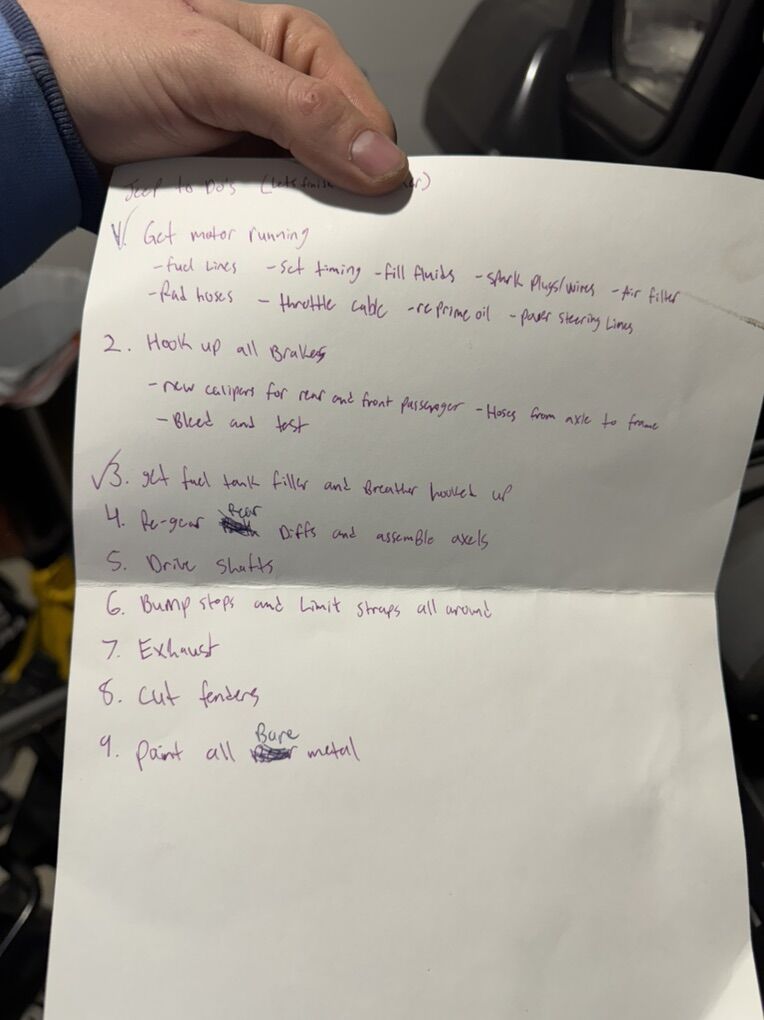 Jeep to Do's (Lets finish
√1. Get motor running
-fuel Lines -set timing -fill fluids -spark plugs/wires -Air filter
-Rad hoses - throttle cable -reprime oil -power steering Lines
2. Hook up all Brakes
-new calipers for rear and front passenger -Hoses from axle to frame
-Bleed and test
√3. get fuel tank filler and Breather hooked up
4. Re-gear Rear Diffs and assemble axels
5. Drive shafts
6. Bump stops and Limit straps all around
7. Exhaust
8. Cut fenders
9. paint all Bare metal